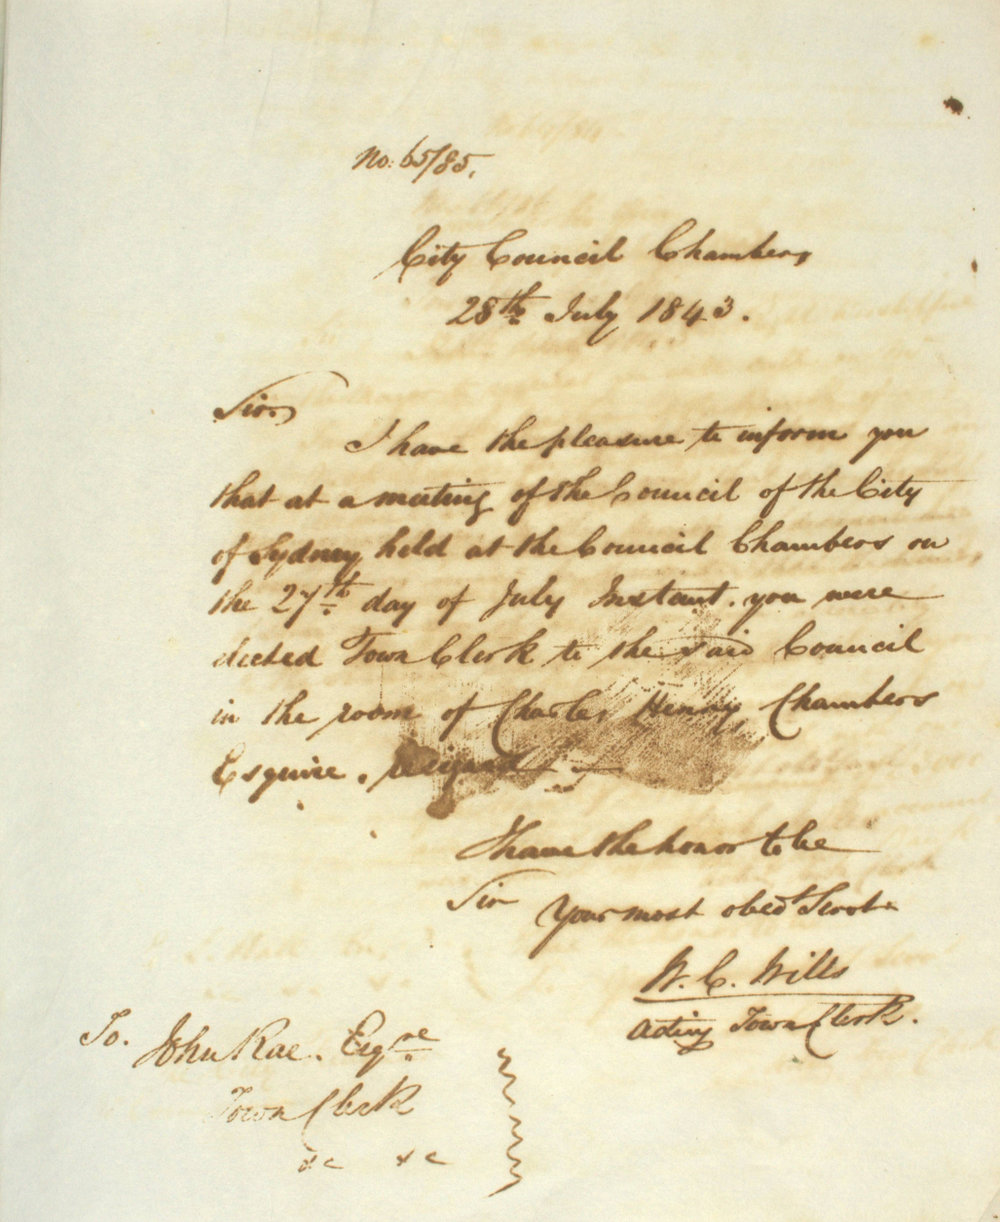 No: 65/85.
City Council Chambers
28th July 1843.
Sir,
I have the pleasure to inform you
that at a meeting of the Council of the City
of Sydney held at the Council Chambers on
the 27th day of July Instant. you were
elected Town Clerk to the said Council
in the room of Charles Henry Chambers
Esquire. resigned
I have the honor to be
Sir
Your most obedt Servt
W. C. Wills
Acting Town Clerk.
To. John Rae. Esqre
Town Clerk
&c &c